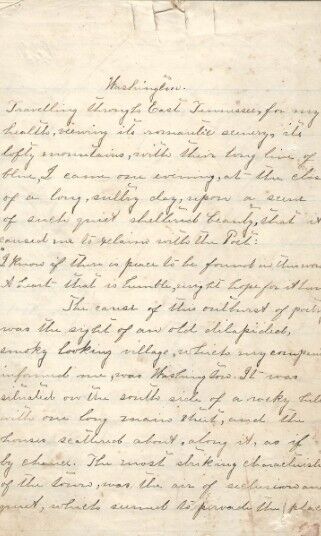 Washington.
Travelling through East Tennessee, for my
health, viewing its romantic scenery, its
lofty mountains, with their long line of
blue, I came one evening, at the close
of a long, sultry day, upon a scene
of such quiet sheltered beauty, that it
caused me to exclaim with the Poet:
"I know if there is peace to be found in this world
A heart that is humble, might hope for it here
The cause of this outburst of poetry
was the sight of an old dilapidated,
smoky looking village, which my companion
informed me, was Washington. It was
situated on the south side of a rocky hill
with one long main street, and the
houses scattered about, along it, as if
by chance. The most striking characteristic
of the town, was the air of seclusion and
quiet, which seemed to pervade the place